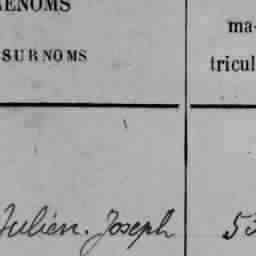 RENOMS
SURNOMS
ma-
tricul
Julien. Joseph
53